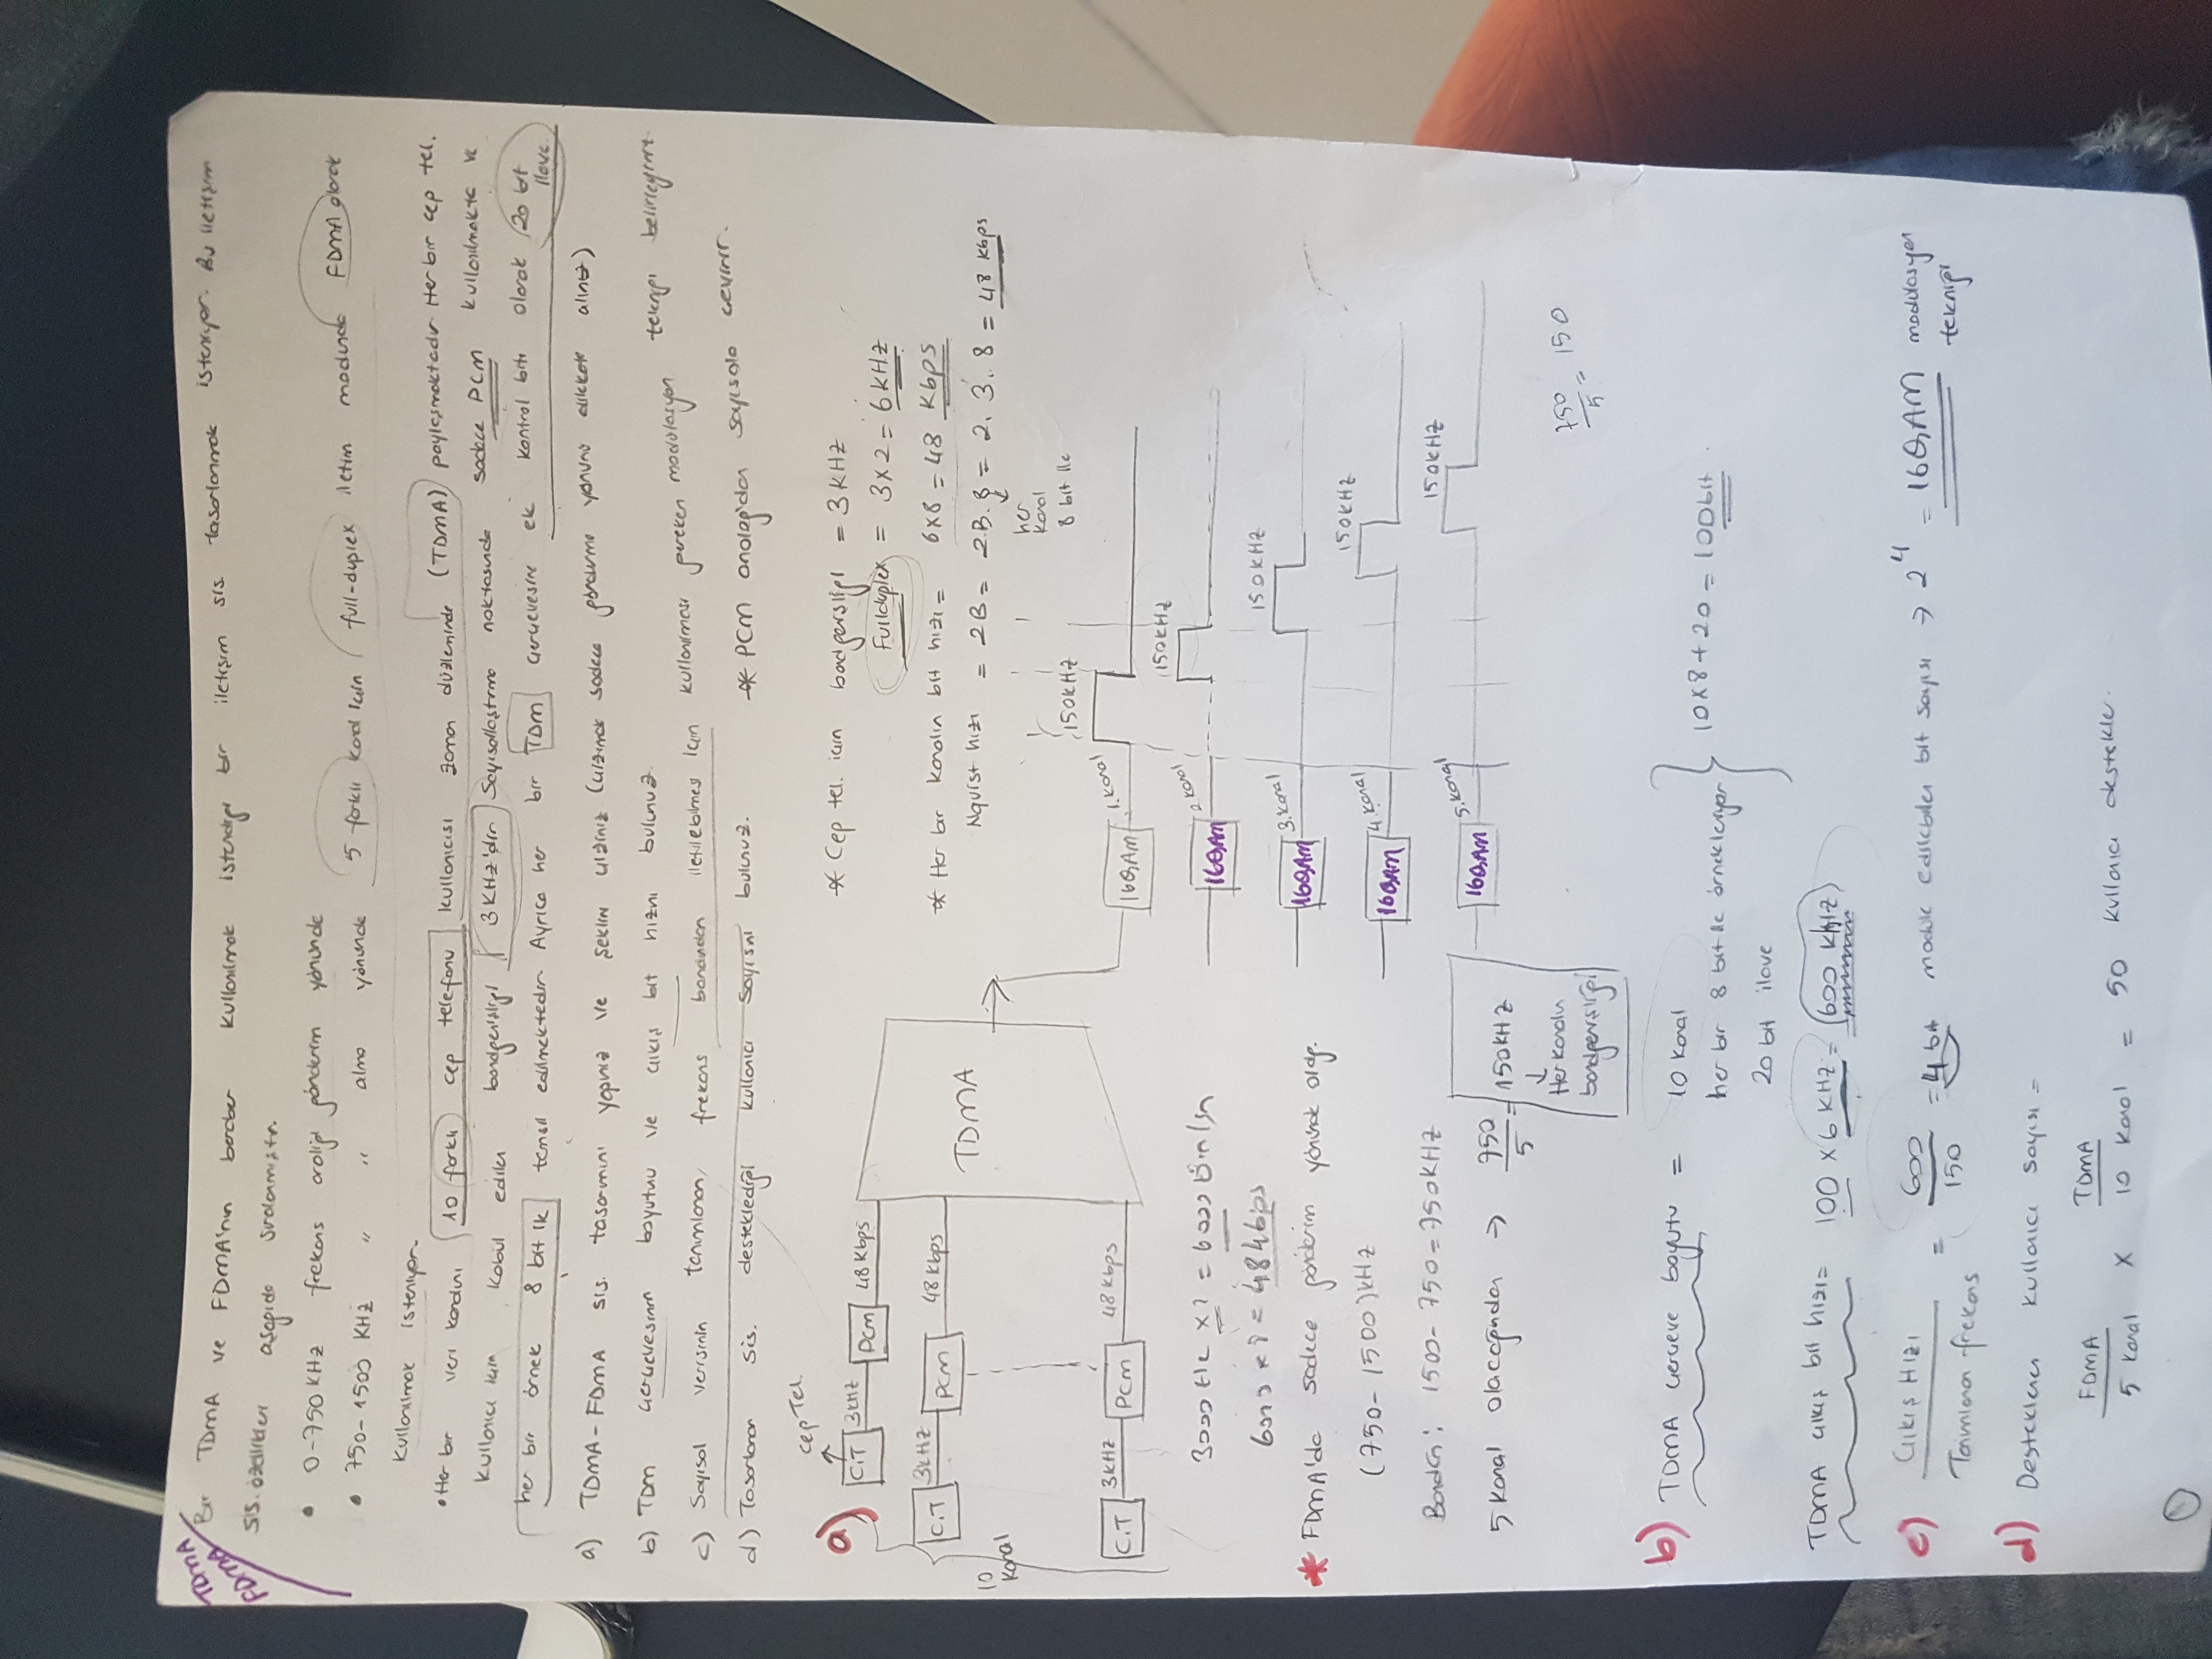 TDMA
FDMA
Bir TDMA ve FDMA'nın beraber kullanılmak istendiği bir iletişim sis. tasarlanmak isteniyor. Bu iletişim
sis. özellikleri aşağıda sıralanmıştır.
• 0-750 KHz frekans aralığı gönderim yönünde
• 750-1500 KHz " " alma yönünde 5 farklı kanal için full-duplex iletim modunda FDMA olarak
kullanılmak isteniyor.
• Her bir veri kanalını 10 farklı cep telefonu kullanıcısı zaman düzleminde (TDMA) paylaşmaktadır. Her bir cep tel.
kullanıcı için kabul edilen bandgenişliği 3 KHz'dir. Sayısallaştırma noktasında sadece PCM kullanılmakta ve
her bir örnek 8 bit ile temsil edilmektedir. Ayrıca her bir TDM çerçevesine ek kontrol biti olarak 20 bit
ilave.
a) TDMA-FDMA sis. tasarımını yapınız ve şeklini çiziniz (çizimde sadece gönderme yönünü dikkate alınız)
b) TDM çerçevesinin boyutunu ve çıkış bit hızını bulunuz.
c) Sayısal verisinin tanımlanan frekans bandından iletilebilmesi için kullanılması gereken modülasyon tekniği belirleyiniz.
d) Tasarlanan sis. desteklediği kullanıcı sayısını bulunuz. * PCM analog'dan sayısala çevirir.
a) cep Tel.
C.T 3kHz PCM 48 Kbps
* Cep tel. için bandgenişliği = 3 KHz
Fullduplex = 3x2 = 6 kHz
C.T 3kHz PCM 48 Kbps
TDMA
* Her bir kanalın bit hızı = 6x8 = 48 Kbps
Nquist hızı = 2B = 2.B.8 = 2. 3.. 8 = 48 kbps
her
kanal
8 bit ile
10
Kanal
C.T 3kHz PCM 48 Kbps
16QAM 1. kanal 150kHz
16QAM 2. kanal 150kHz
16QAM 3. kanal 150kHz
16QAM 4. kanal 150kHz
16QAM 5. kanal 150kHz
= 6000
6000 x 8 = 48 kbps
* FDMA'da sadece gönderim yönünde olup.
(750-1500) kHz
1500-750=750KHZ
5 Kanal olacağından → 750/5 = 150kHz
↓
Her kanalın
bandgenişliği
750/5 = 150
b) TDMA çerçeve boyutu = 10 kanal
her bir 8 bit ile örnekleniyor
20 bit ilave
10x8+20 = 100bit
TDMA çıkış bit hızı = 100 x 6 KHz = 600 kHz
c) Çıkış Hızı / Tanımlanan frekans = 600/150 = 4 bit module edilebilen bit sayısı → 2^4 = 16QAM modülasyon
tekniği
d) Desteklenen kullanıcı sayısı =
FDMA / 5 kanal x TDMA / 10 kanal = 50 kullanıcı destekler.